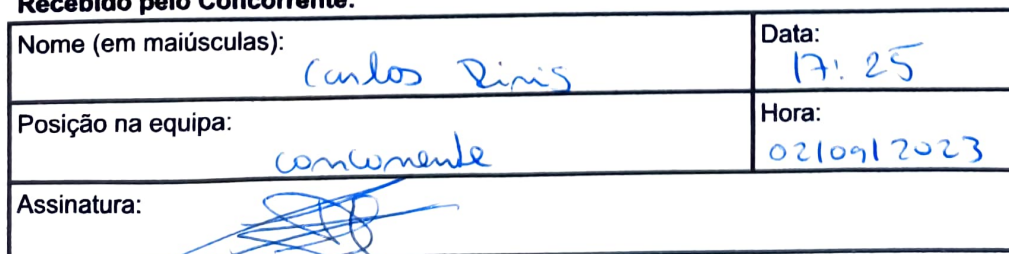 Recebido pelo Concorrente:
Nome (em maiúsculas):
Carlos
Data:
17:25
Posição na equipa:
concorrente
Hora:
02/09/2023
Assinatura: